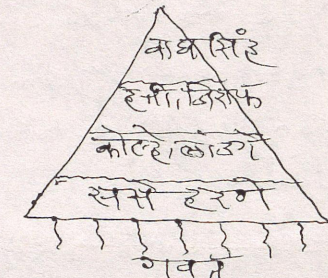 वाघ सिंह
हत्ती, जिराफ
कोल्हे, लांडगे
ससे हरणे
गवत